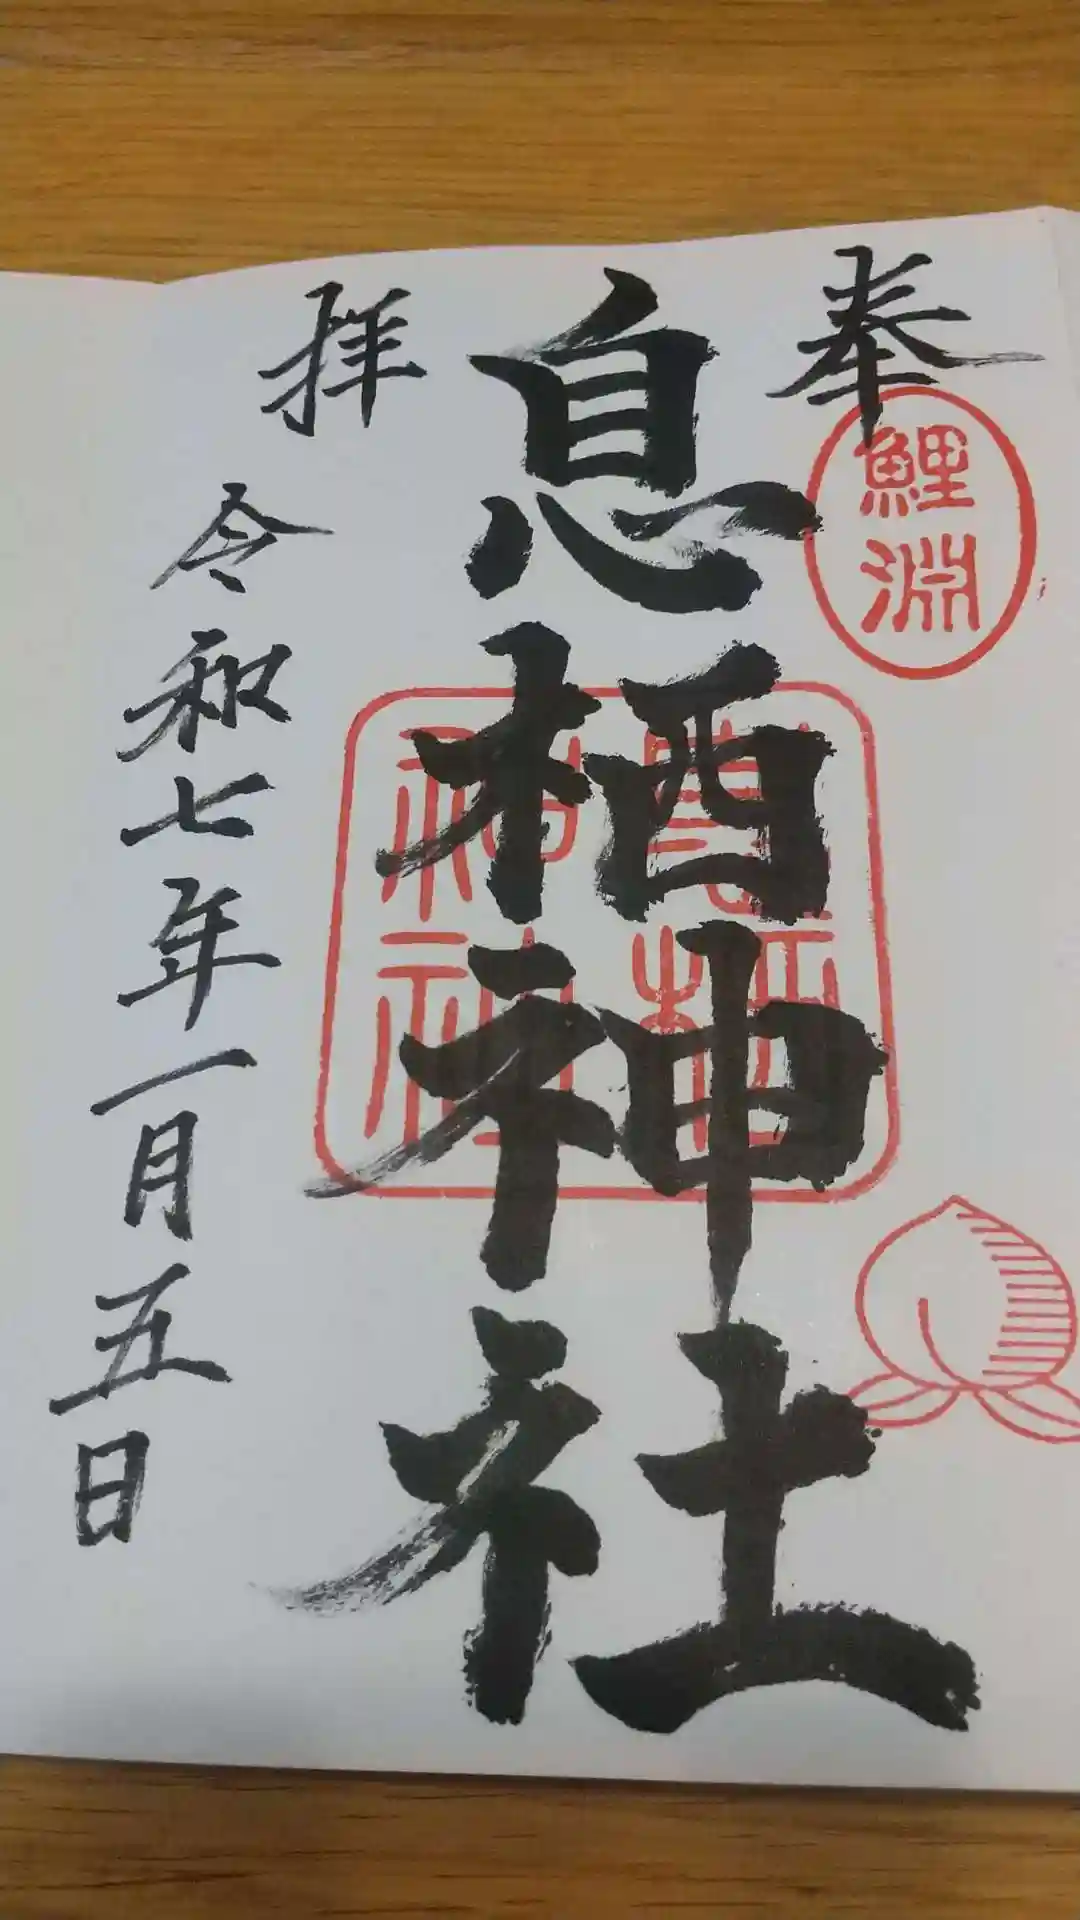 奉
鯉淵
息栖神社
息栖神社
拝
令和七年一月五日